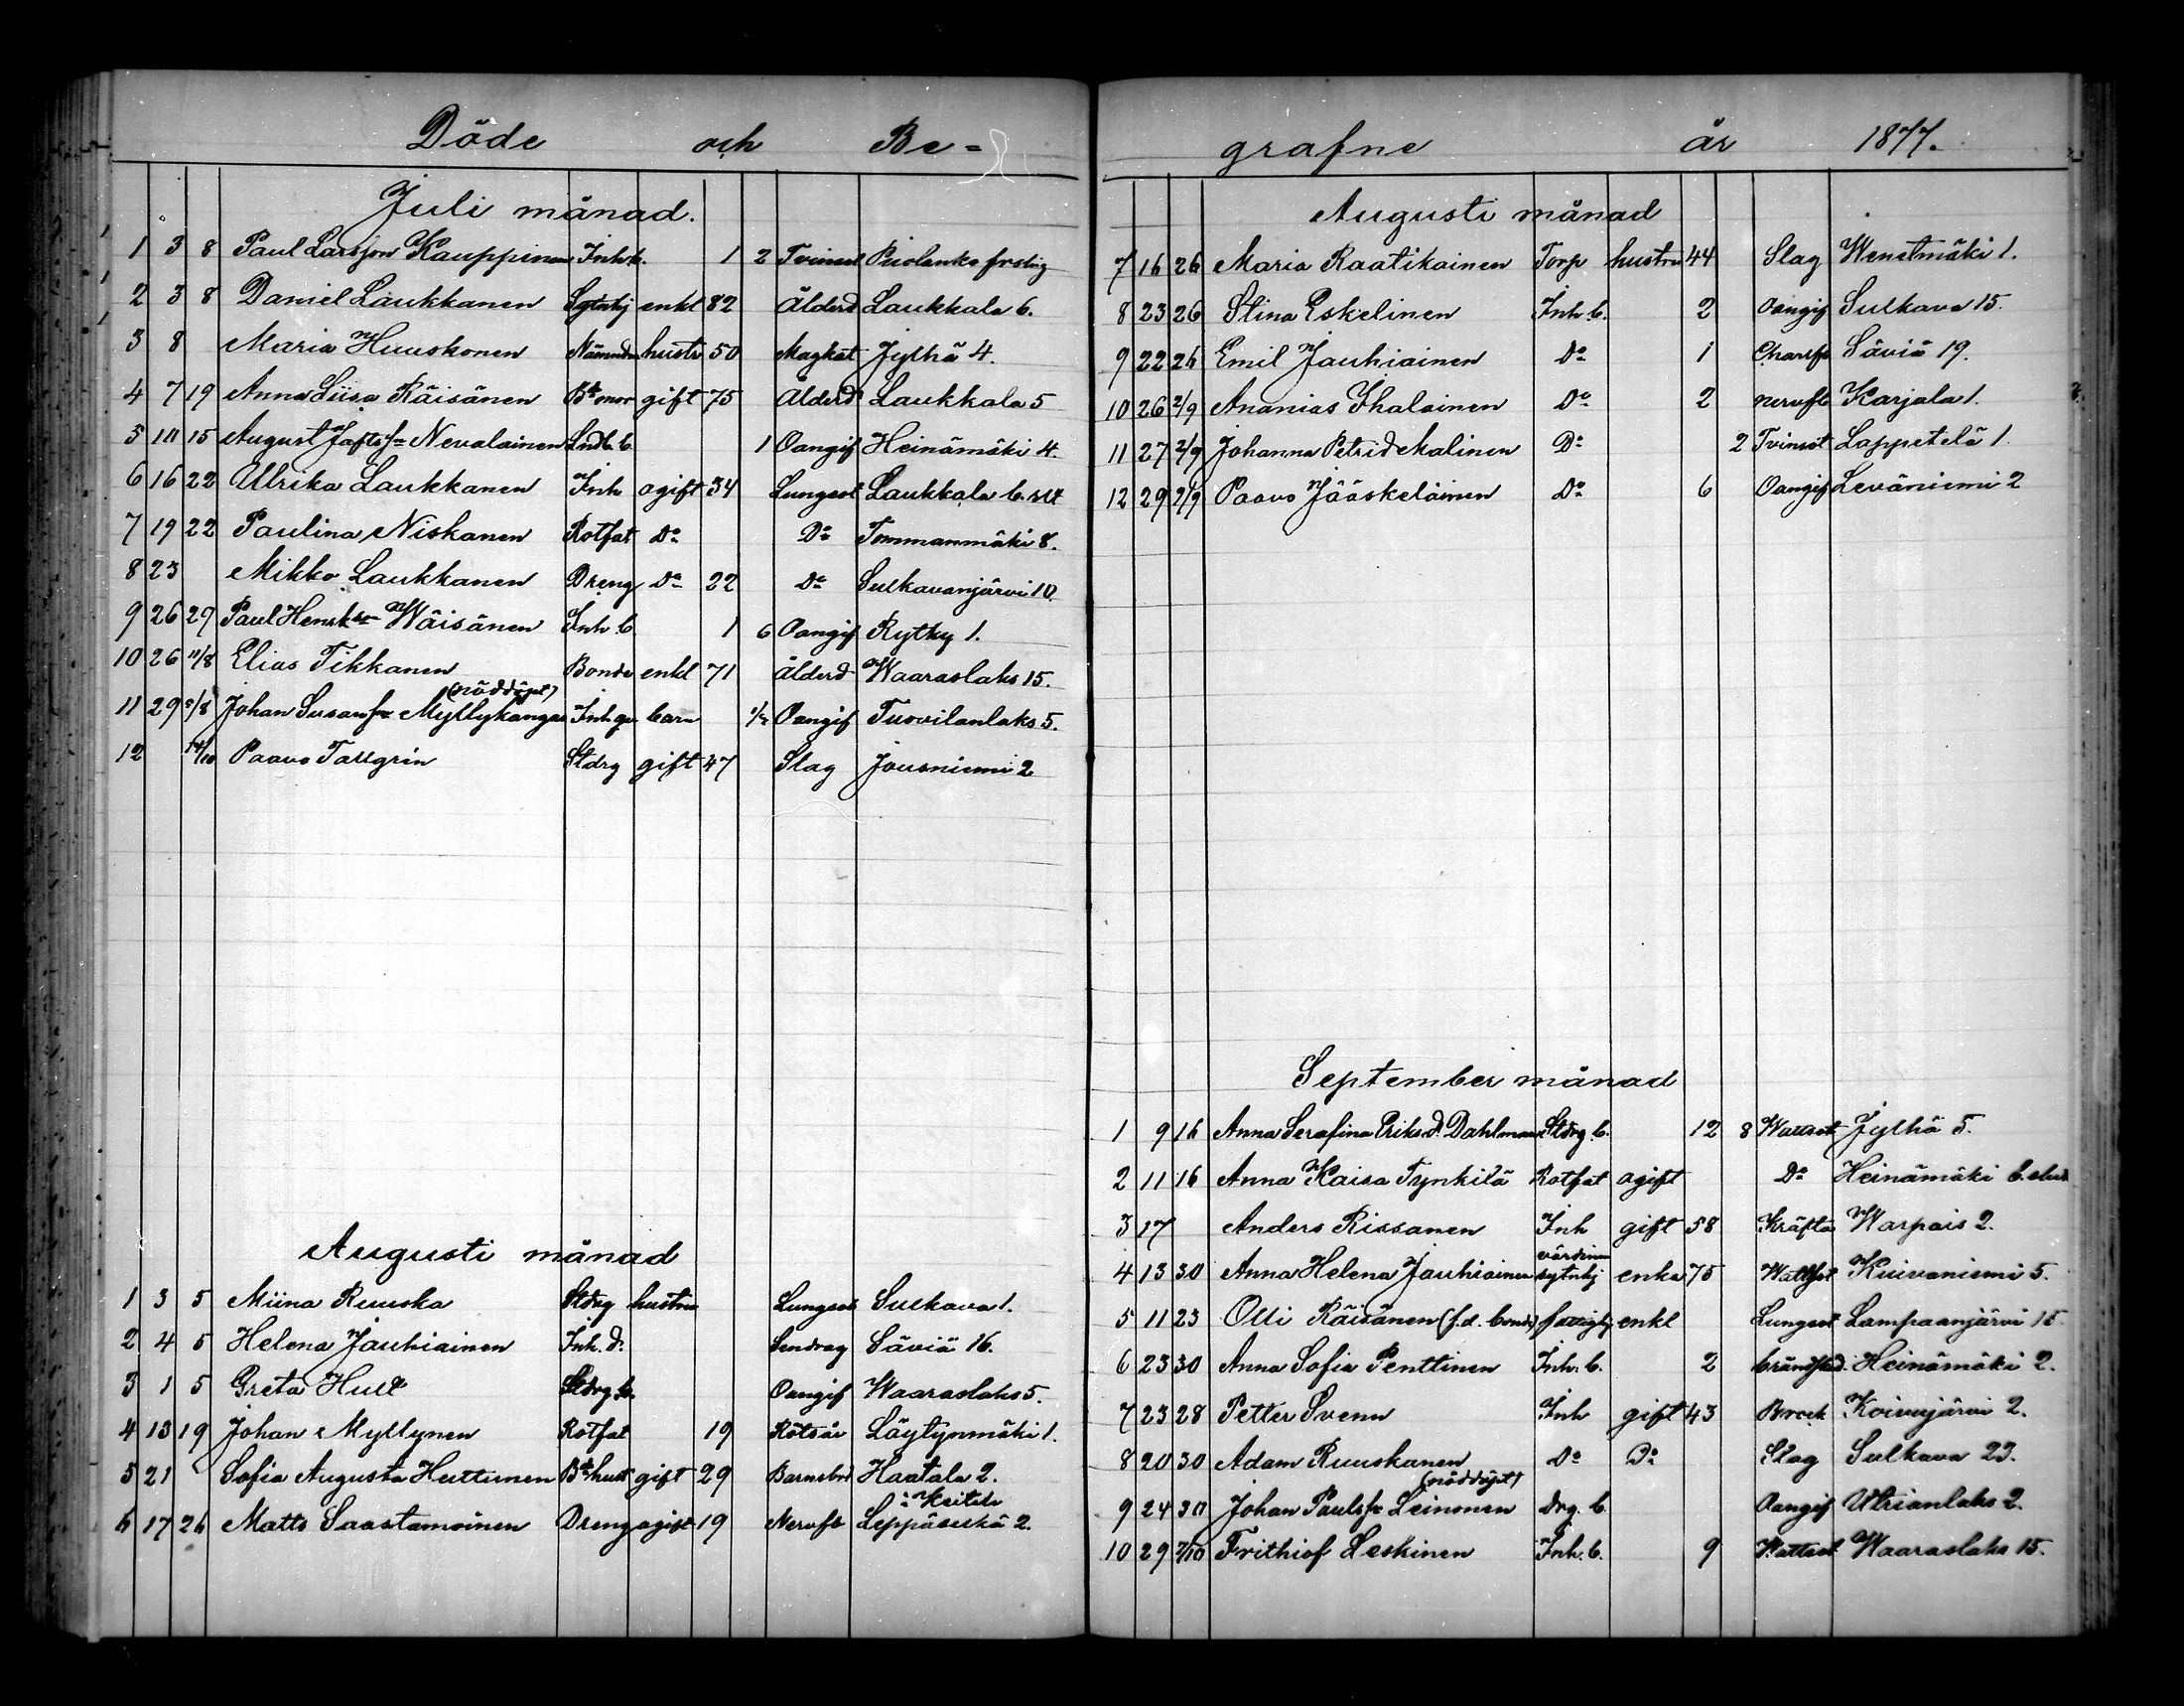 Döde och Be-
Juli månad.
1 3 8 Paul Larsson Kauppinen Inh. b. 1 2 Tvinsot Piolanko frsling
2 3 8 Daniel Laukkanen Sytnhj enkl 82 Ålderd Laukkala 6.
3 8 Maria Huuskonen Nämndm hustr 50 Magkat Jylhä 4.
4 7 19 Anna Liisa Räisänen Bd mor gift 75 Ålderd Laukkala 5
5 10 15 August Jafts sn Nevalainen Lndb b 1 Oangif Heinämäki 4.
6 16 22 Ulrika Laukkanen Inh ogift 34 Lungsot Laukkala b. sld
7 19 22 Paulina Niskanen Rotfat Do Do Tommanmäki 8.
8 23 Mikko Laukkanen Dreng Do 22 Do Sulkavanjärvi 10
9 26 29 Paul Henrks sn Wäisänen Inh b 1 6 Oangif Rytky 1.
10 26 11/8 Elias Tikkanen Bonde enkl 71 Ålderd Waaraslaks 15.
(nöddöpt)
11 29 5/8 Johan Susan sn Myllykangas Inh qv barn 1/2 Oangif Tuovilanlaks 5.
12 14/10 Paavo Tallgrin Stdrg gift 47 Slag Jousniemi 2
Augusti månad
1 3 5 Miina Ruuska Stdrg hustru Lungsot Sulkava 1.
2 4 5 Helena Jauhiainen Inh. d. Sendrag Säviä 16.
3 1 5 Greta Hult Stdrg b. Oangif Waaraslaks 5.
4 13 19 Johan Myllynen Rotfat 19 Rötsår Läytynmäki 1.
5 21 Sofia Augusta Huttunen Bd hust gift 29 Barnsbrd Haatala 2.
i Keitele
6 17 26 Matts Saastamoinen Dreng ogift 19 Nervfb Leppäselkä 2.
grafne år 1877.
Augusti månad
7 16 26 Maria Raatikainen Torp hustru 44 Slag Wenetmäki 1.
8 23 26 Stina Eskelinen Inh. b. 2 Oangif Sulkava 15.
9 22 26 Emil Jauhiainen Do 1 Charlfb Säviä 19.
10 26 2/9 Ananias Ihalainen Do 2 nervfb Karjala 1.
11 27 2/9 Johanna Petrid Malinen Do 2 Tvinsot Lappetelä 1.
12 29 2/9 Paavo Jääskeläinen Do 6 Oangif Leväniemi 2
September månad
1 9 16 Anna Serafina Eriksd. Dahlman Stdrg b. 12 8 Wattsot Jylhä 5.
2 11 16 Anna Kaisa Tynkilä Rotfat ogift Do Heinämäki b. slud
3 17 Anders Rissanen Inh gift 58 Kräfta Warpais 2.
värdinna
4 13 30 Anna Helena Jauhiainen sytnhj enka 75 Wattsot Kuivaniemi 5.
5 11 23 Olli Räisänen (f.d. bonde) fattighj enkl Lungsot Lampaanjärvi 15
6 23 30 Anna Sofia Penttinen Inh. b. 2 brändskad. Heinämäki 2.
7 23 28 Petter Svenn Inh gift 43 Brock Koivujärvi 2.
8 20 30 Adam Ruuskanen Do Do Slag Sulkava 23.
(nöddöpt)
9 24 30 Johan Pauls sn Leinonen Drg. b. Oangif Utrianlaks 2.
10 29 7/10 Frithiof Leskinen Inh. b. 9 Wattsot Waaraslaks 15.